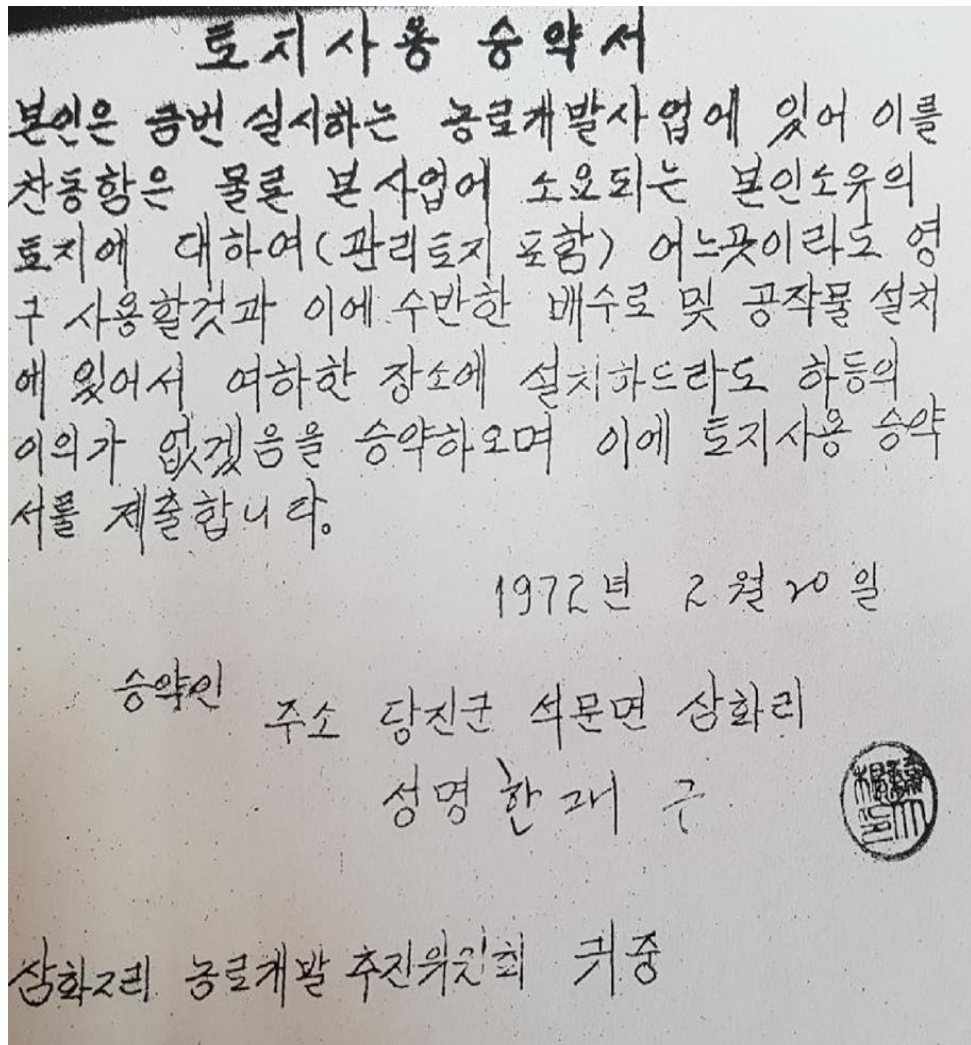 토지사용 승약서
본인은 금번 실시하는 농로개발사업에 있어 이를
찬동함은 물론 본사업에 소요되는 본인소유의
토지에 대하여(관리토지 포함) 어느곳이라도 영
구 사용할것과 이에 수반한 배수로 및 공작물 설치
에 있어서 여하한 장소에 설치하드라도 하등의
이의가 없겠음을 승약하오며 이에 토지사용 승약
서를 제출합니다.
1972년 2월 20일
승약인
주소 당진군 석문면 삼화리
성명 한 구
삼화2리 농로개발 추진위원회 귀중